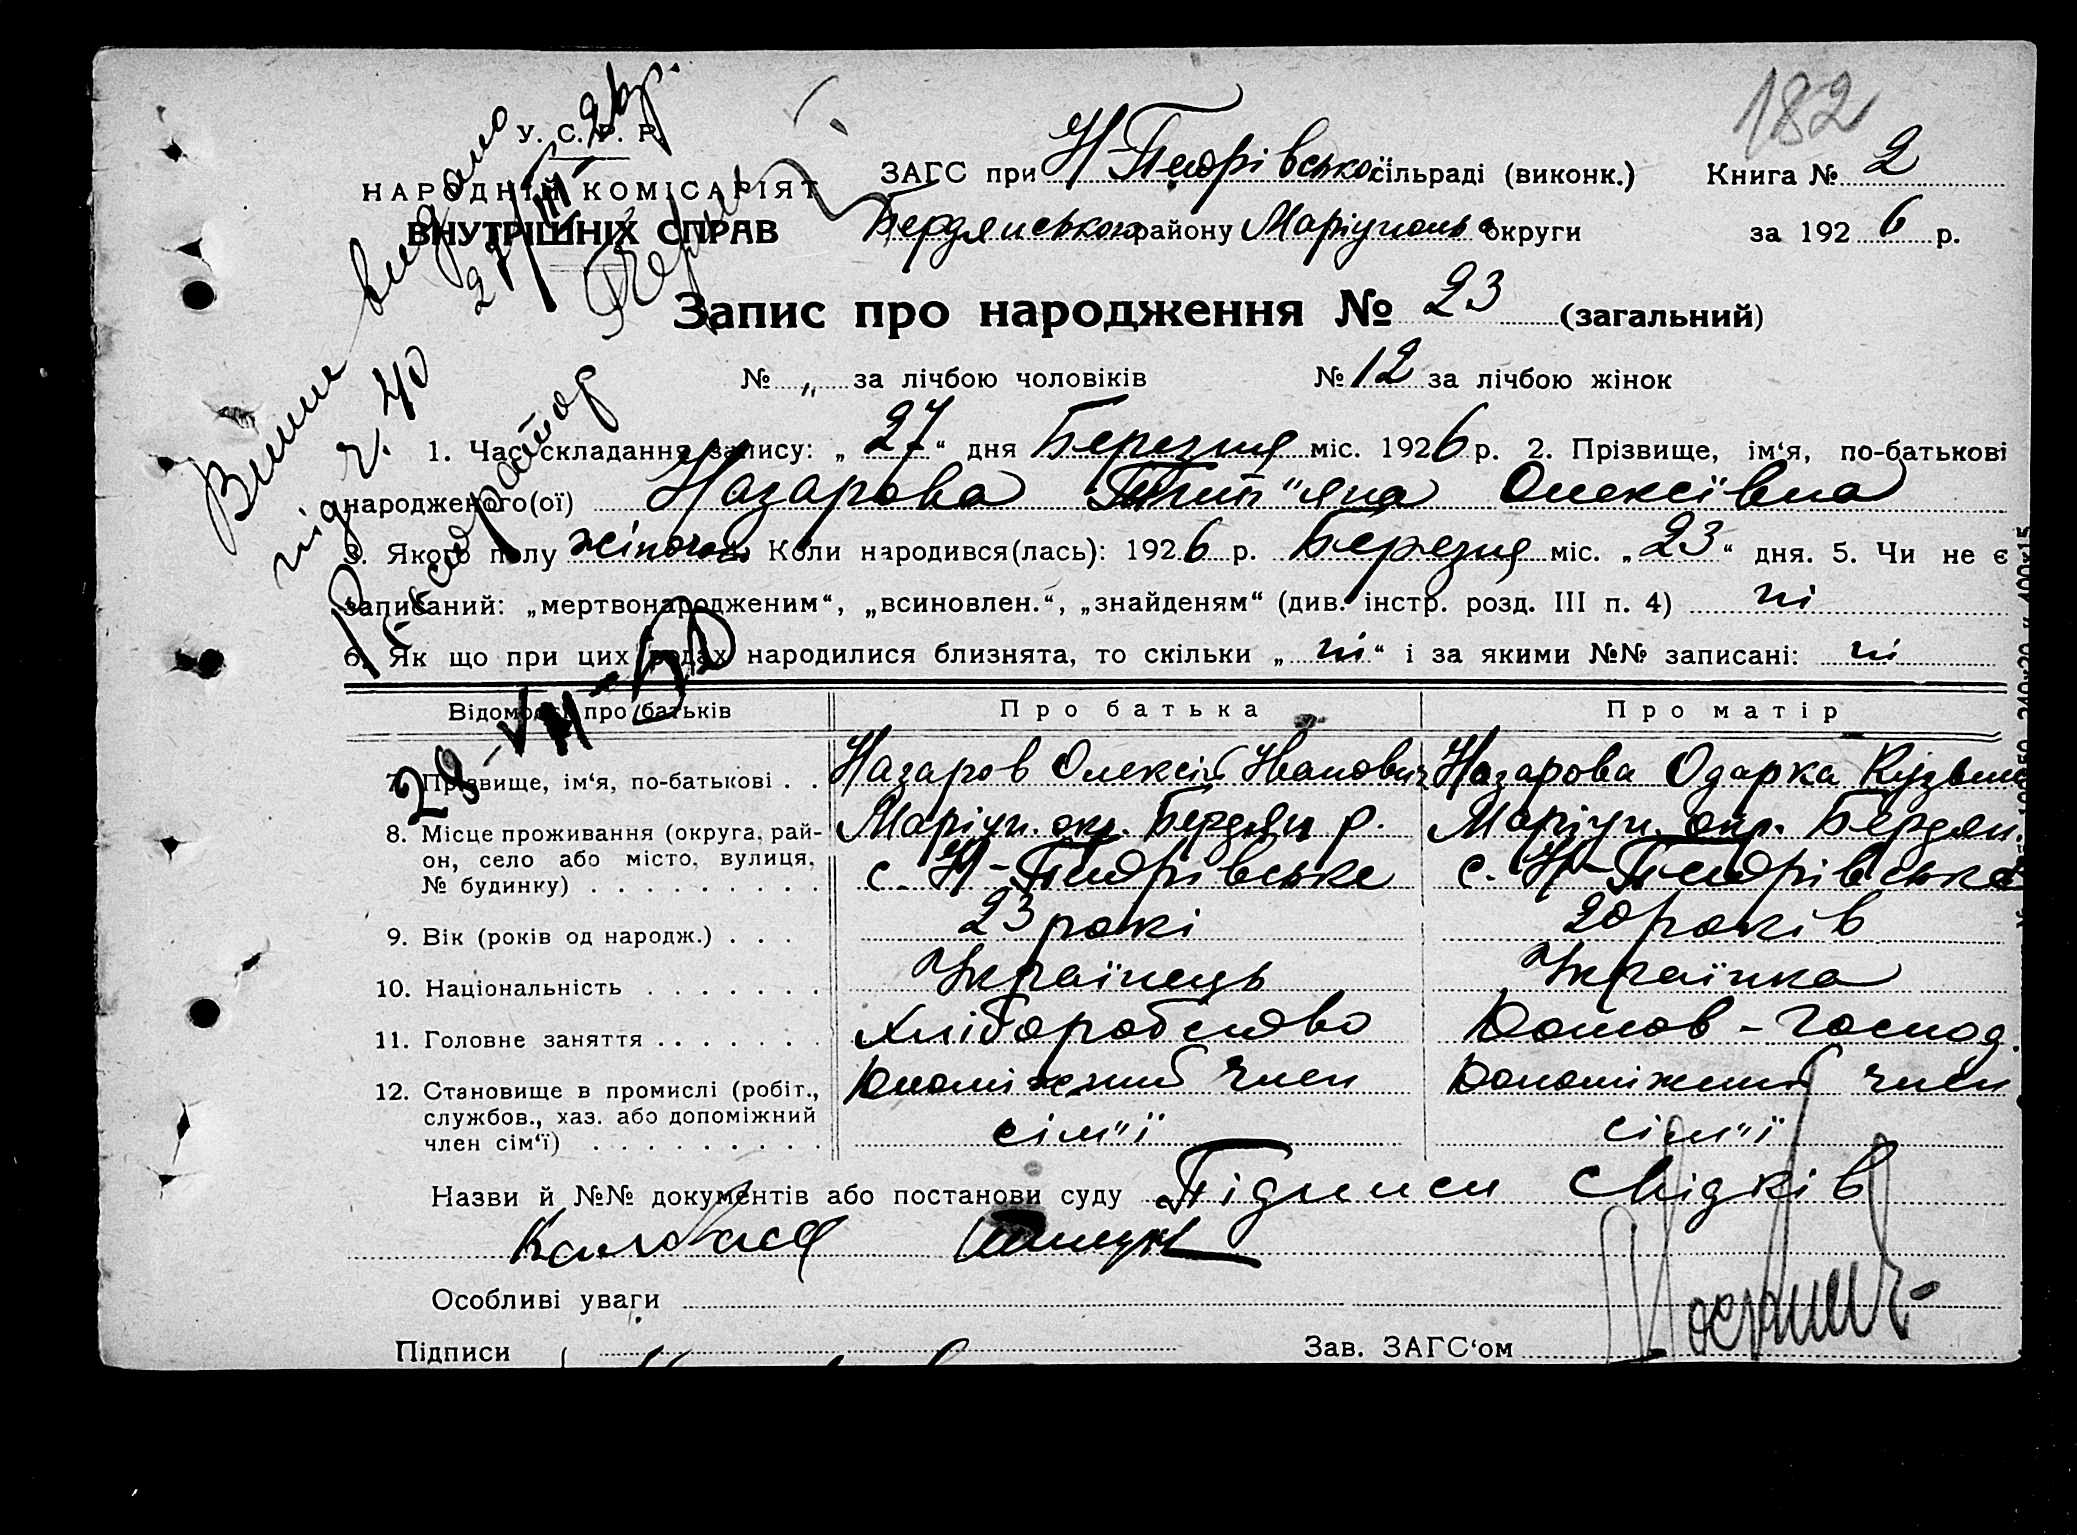 182
У. С. Р. Р.
НАРОДНІЙ КОМІСАРІЯТ
ВНУТРІШНІХ СПРАВ
Випис видано
27/III 26р.
під ч. 40
Реєстратор
28-VII-50
ЗАГС при Н-Петрівської сільраді (виконк.) Книга № 2
Бердянського району Маріуполь. округи за 1926 р.
Запис про народження № 23 (загальний)
№ „ за лічбою чоловіків № 12 за лічбою жінок
1. Час складання запису: „27“ дня Березня міс. 1926 р. 2. Прізвище, ім‘я, по-батькові
народженого(ої) Назарова Тит"яна Олексіївна
3. Якого полу жіночого Коли народився(лась): 1926 р. Березня міс. „23“ дня. 5. Чи не є
записаний: „мертвонародженим“, „всиновлен.“, „знайденям“ (див. інстр. розд. III п. 4) ні
6. Як що при цих родах народилися близнята, то скільки „ні“ і за якими №№ записані: ні
Відомості про батьків Про батька Про матір
7. Прізвище, ім‘я, по-батькові . . Назаров Олексій Іванович Назарова Одарка Кузьм
8. Місце проживання (округа, рай- Маріуп. окр. Бердян р. Маріуп. окр. Бердян.
он, село або місто, вулиця,
№ будинку) . . . . . . . . . с. Н-Петрівське с. Н-Петрівське
9. Вік (років од народж.) . . . 23 рокі 20 років
10. Національність . . . . . . . Українець Українка
11. Головне заняття . . . . . . . Хліборобство Домов-господ.
12. Становище в промислі (робіт., Допоміжний член Допоміжний член
службов., хаз. або допоміжний
член сім‘ї) . . . . . . . . . сім"ї сім"ї
Назви й №№ документів або постанови суду Підписи свідків
Особливі уваги
Підписи Зав. ЗАГС‘ом